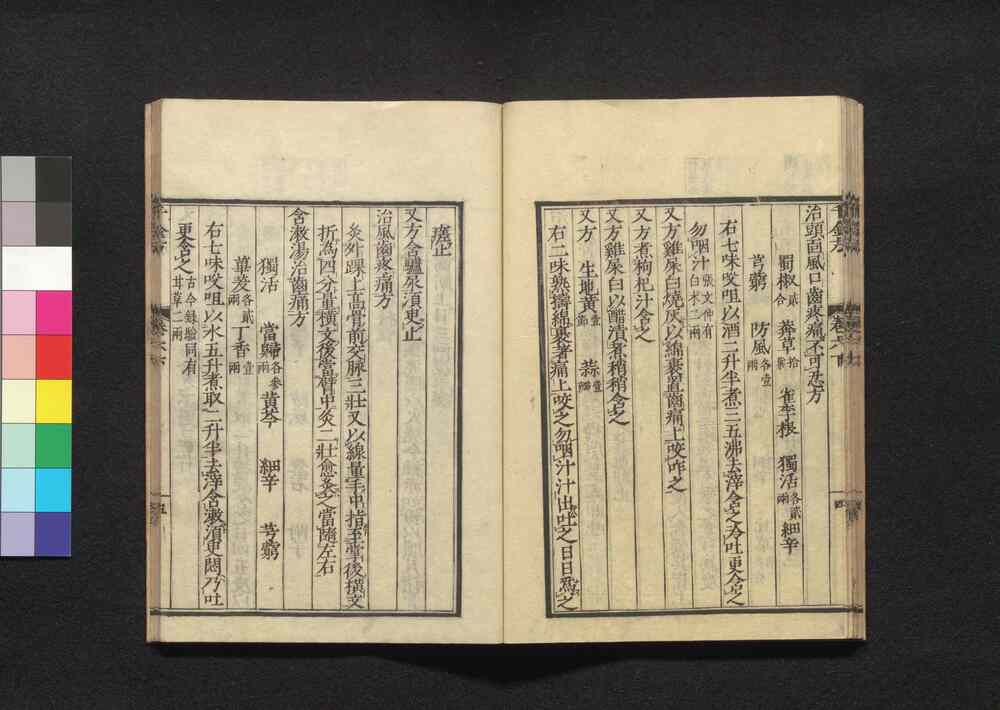 治頭面風口齒疼痛不可忍方
蜀椒貳合 莽草拾葉 雀李根 獨活各貳兩 細辛
芎藭 防風各壹兩
右七味㕮咀以酒二升半煮三五沸去滓含之冷吐更含之
勿咽汁張文仲有白术二兩
又方雞屎白燒灰以綿裹置齒痛上咬咋之
又方煮枸杞汁含之
又方雞屎白以醋漬煮稍稍含之
又方 生地黃壹節 蒜壹瓣
右二味熟擣綿裹著痛上咬之勿咽汁汁出吐之日日為之
瘥止
又方含驢尿須臾止
治風齒疼痛方
灸外踝上高骨前交脉三壯又以線量手中指至掌後橫文
折為四分量橫文後當臂中灸一壯愈灸之當隨左右
含漱湯治齒痛方
獨活 當歸各參兩 黃芩 細辛 芎藭
蓽茇各貳兩 丁香壹兩
右七味㕮咀以水五升煮取二升半去滓含漱須臾悶乃吐
更含之古今錄驗同有甘草二兩
五